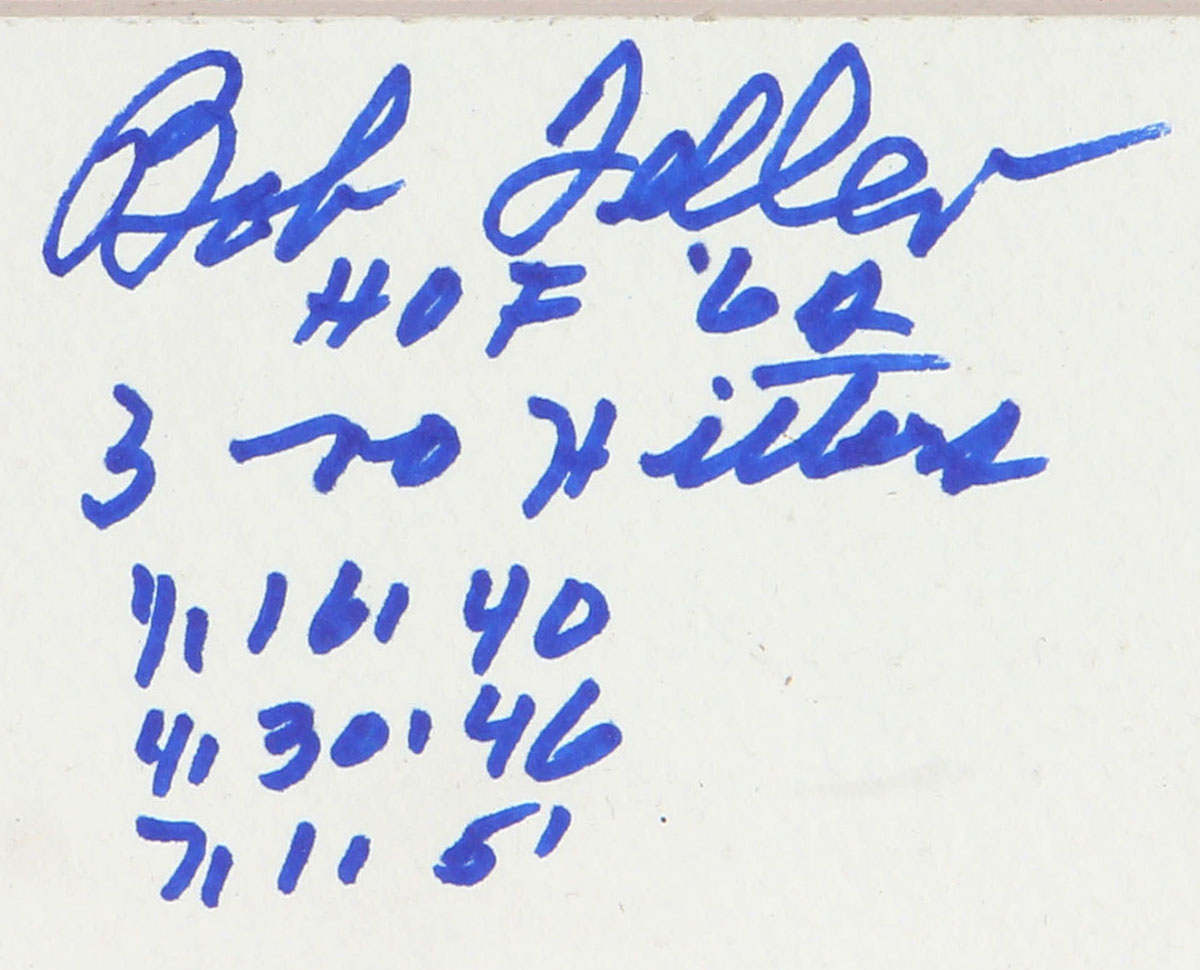 Bob Feller
HOF '62
3 no Hitters
4, 16, 40
4, 30, 46
7, 1, 51